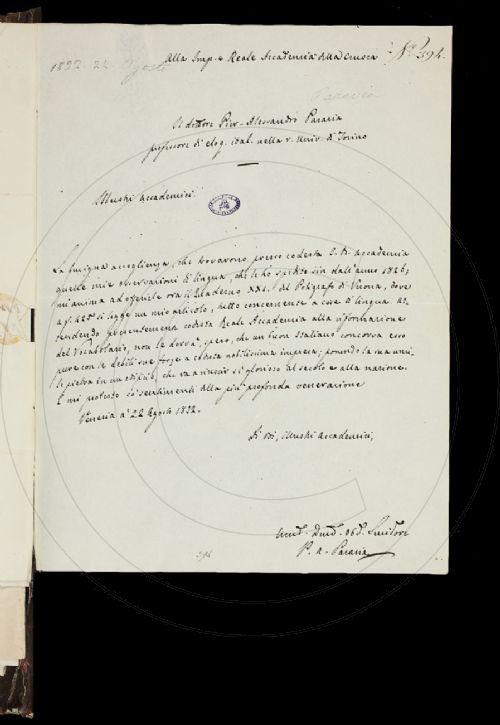 Alla Imp. e Reale Accademia della Crusca
N.º 394.
1832. 22. Agosto
Paravia
Il dottore Pier-Alessandro Paravia
professore di eloq. ital. nella r. Univ. di Torino
Illustri Accademici.
La benigna accoglienza, che trovarono presso codesta I. R. Accademia
quelle mie observazioni di lingua, che le ho spedito sin dall'anno 1826;
mi anima ad offerirle ora il Quaderno XXI. del Poligrafo di Verona, dove
a f. 425 si legge un mio articolo, tutto concernente a cose di lingua. At-
tendendo presentemente codesta Reale Accademia alla riformazione
del Vocabolario, non le dorrà, spero, che un buon Italiano concorra esso
pure con le debili sue forze a codesta nobilissima impresa; ponendo la sua umi-
le pietra in un edifizio, che va a riuscir sì glorioso al secolo e alla nazione.
E mi protesto co' sentimenti della più profonda venerazione
Venezia a' 22 Agosto 1832.
Di Voi, illustri Accademici,
Servitore
P. A. Paravia
394